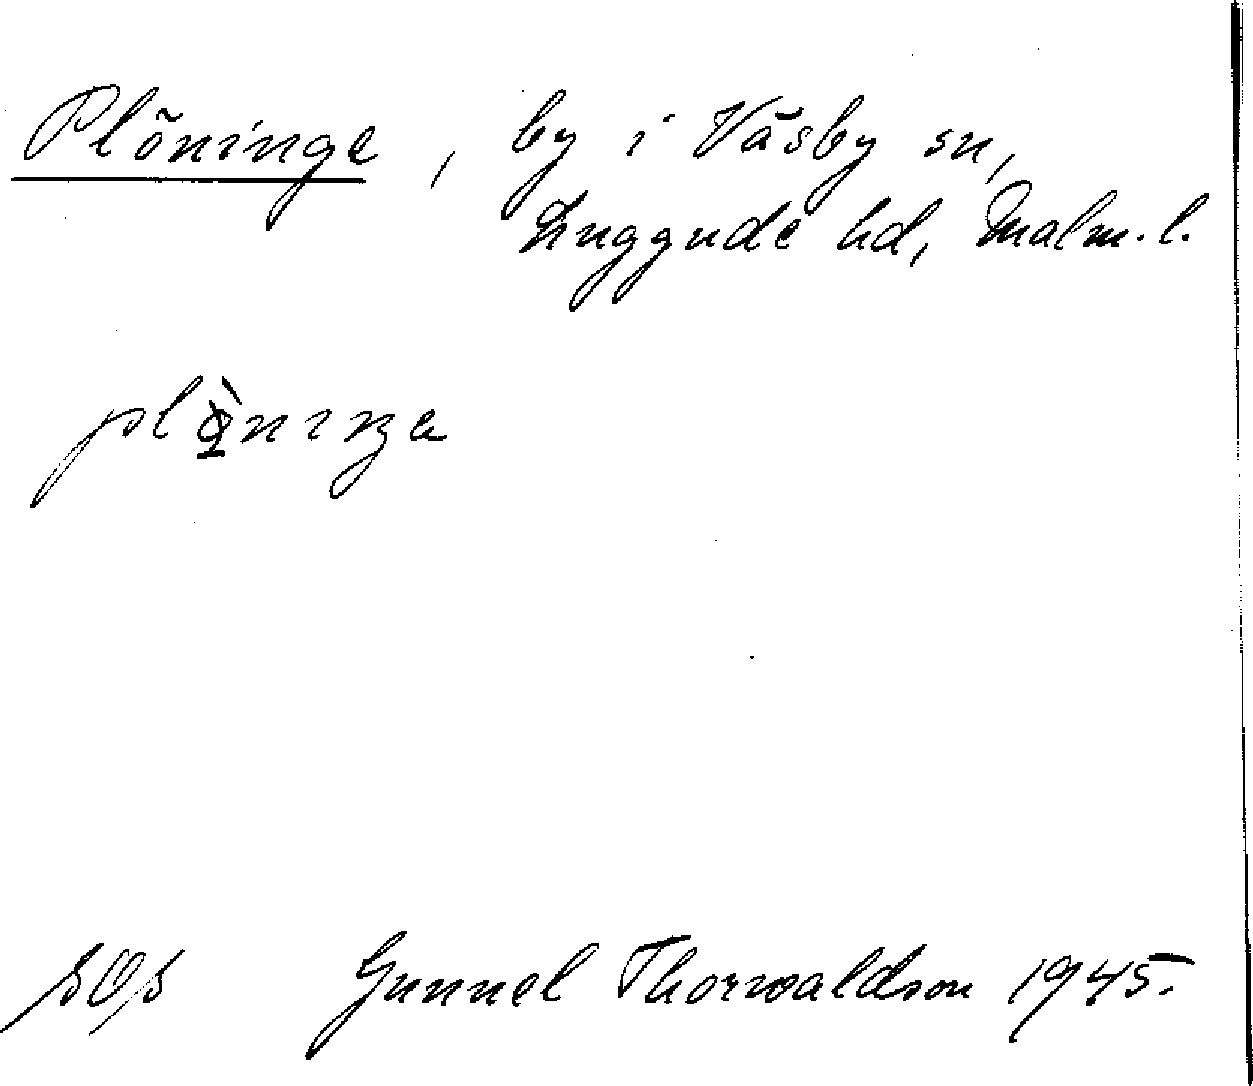 Plöninge, by i Väsby sn,
Luggude hd, Malm.l.
plø̀niŋa
sOs Gunnel Thorwaldson 1945.